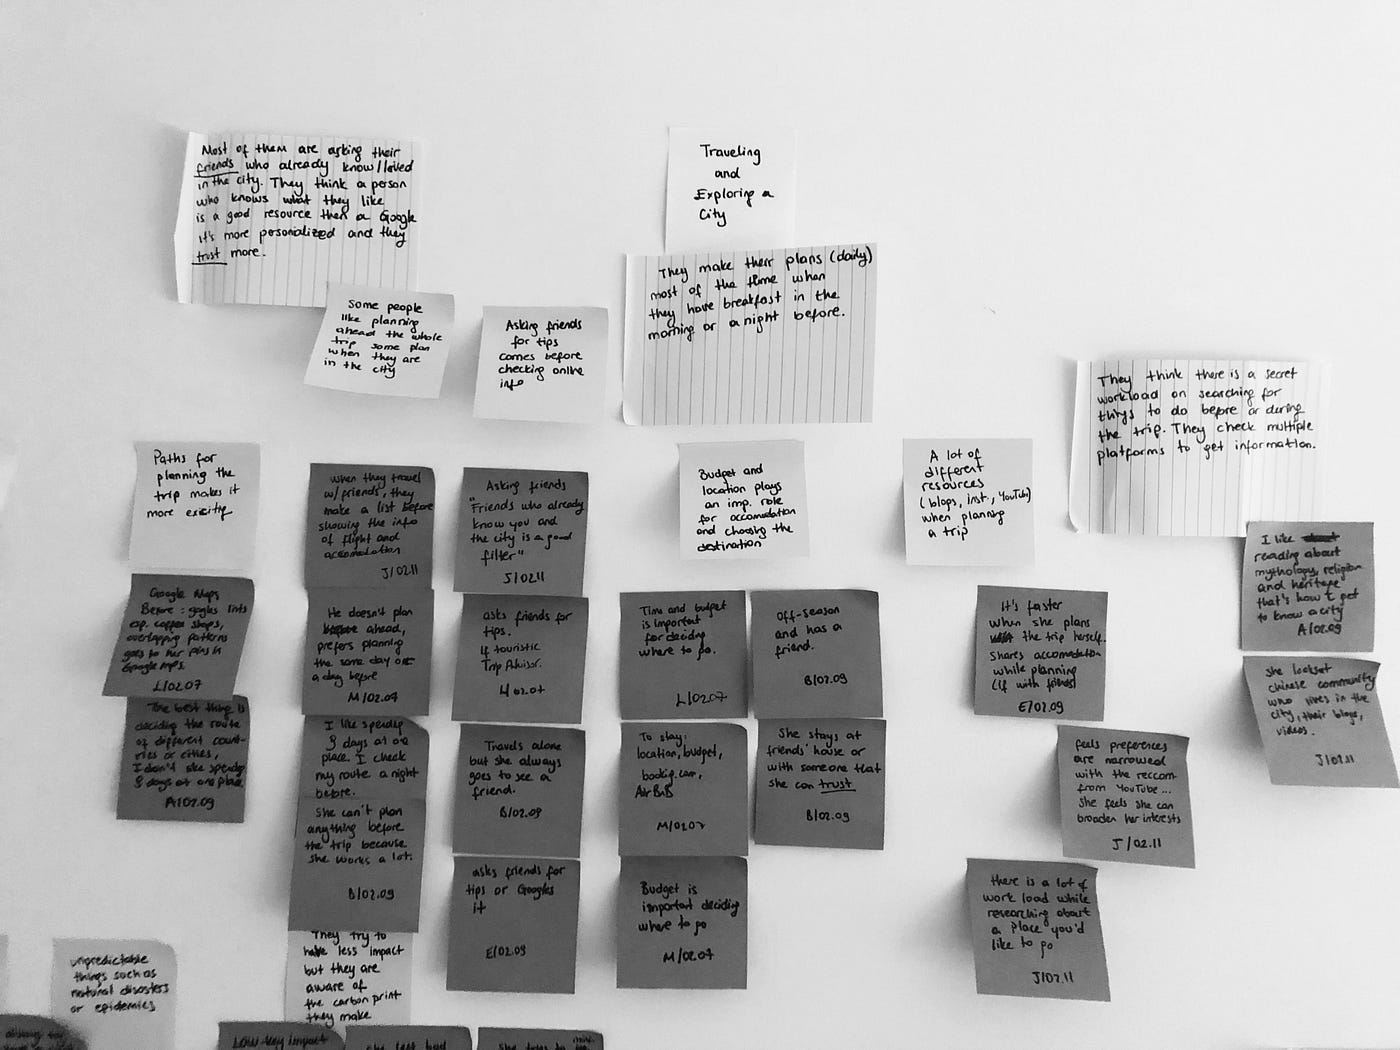 Most of them are asking their
friends who already know/lived
in the city. They think a person
who knows what they like
is a good resource then a Google
it's more personalized and they
trust more.
Traveling
and
Exploring a
City
They make their plans (daily)
most of the time when
they have breakfast in the
morning or a night before.
Some people
like planning
ahead the whole
trip some plan
when they are
in the city
Asking friends
for tips
comes before
checking online
info
They think there is a secret
workload on searching for
things to do before or during
the trip. They check multiple
platforms to get information.
Paths for
planning the
trip makes it
more exciting
when they travel
w/friends, they
make a list before
showing the info
of flight and
accomodation
J/02.11
Asking friends
"Friends who already
know you and
the city is a good
filter"
J/02.11
Budget and
location plays
an imp. role
for accomodation
and choosing the
destination
A lot of
different
resources
(blogs, inst., YouTube)
when planning
a trip
I like
reading about
mythology, religion
and heritage
that's how I get
to know a city
A/02.09
Google Maps
Before: googles lists
coffee shops,
overlapping patterns
goes to her pins in
Google Maps.
L/02.07
He doesn't plan
ahead,
prefers planning
the same day or
a day before
M/02.07
asks friends for
tips.
if touristic
Trip Advisor.
02.07
Time and budget
is important
for deciding
where to go.
L/02.07
Off-season
and has a
friend.
B/02.09
It's faster
when she plans
the trip herself.
shares accomodation
while planning
(if with friends)
E/02.09
she looks at
chinese community
who lives in the
city, their blogs,
videos.
J/02.11
The best thing is
deciding the route
of different count-
ries or cities,
I don't like spending
3 days at one place.
A/02.09
I like spending
3 days at one
place. I check
my route a night
before.
Travels alone
but she always
goes to see a
friend.
B/02.09
To stay:
location, budget,
booking.com,
AirBnB
M/02.07
She stays at
friends' house or
with someone that
she can trust
B/02.09
feels preferences
are narrowed
with the reccom
from YouTube...
she feels she can
broaden her interests
J/02.11
she can't plan
anything before
the trip because
she works a lot.
B/02.09
asks friends for
tips or Googles
it
E/02.09
Budget is
important deciding
where to go
M/02.07
there is a lot of
work load while
researching about
a place you'd
like to go
J/02.11
unpredictable
things such as
natural disasters
or epidemics
They try to
have less impact
but they are
aware of
the carbon print
they make
Low-key impact
she feels bad
She tries to